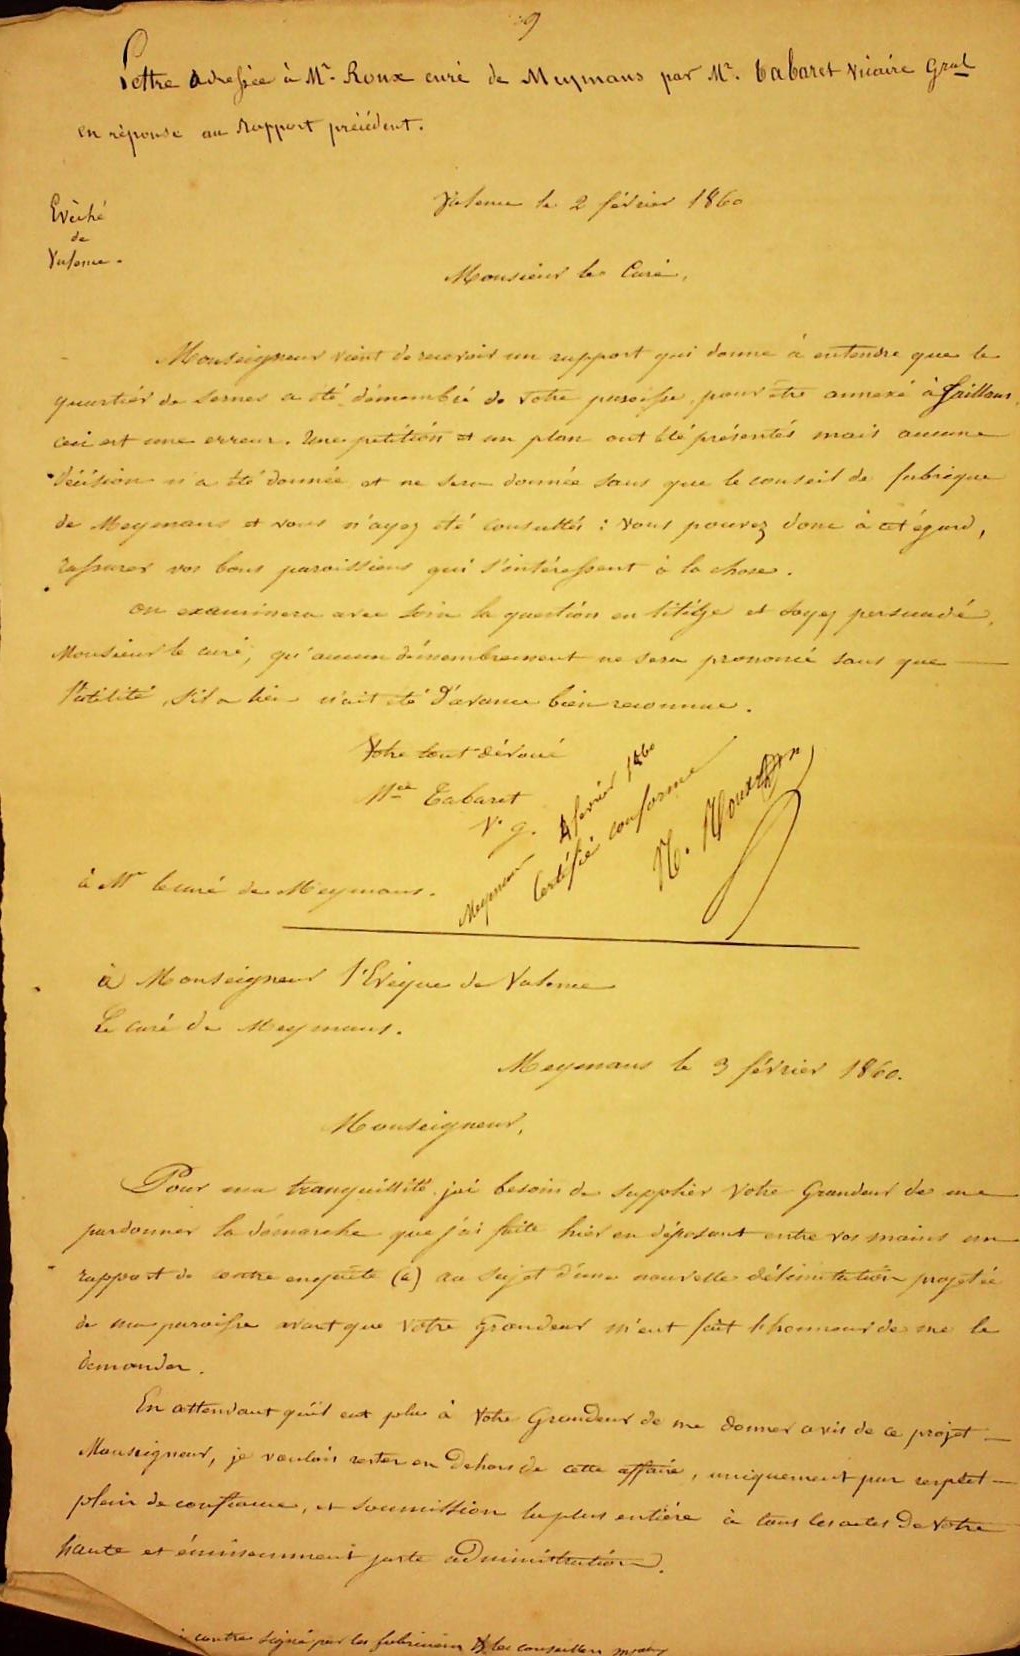 39
Lettre adressée à Mr. Roux curé de Meymans par Mr. Tabaret Vicaire Gral
en réponse au Rapport précédent.
Valence le 2 février 1860
Evêché
de
Valence.
Monsieur le Curé,
Monseigneur vient de recevoir un rapport qui donne à entendre que le
quartier de Sernes a été démembré de votre paroisse pour être annexé à Jaillans,
ceci est une erreur. Une petition et un plan ont été présentés mais aucune
décision n'a été donnée et ne sera donnée sans que le conseil de fabrique
de Meymans et vous n'ayez été consultés : vous pouvez donc à cet égard,
rassurer vos bons paroissiens qui s'intéressent à la chose.
on examinera avec soin la question en litige et soyez persuadé,
Monsieur le curé, qu'aucun démembrement ne sera prononcé sans que
l'utilité, s'il a lieu n'ait été d'avance bien reconnue.
Votre tout dévoué
Tabaret
V. g.
Meymans 4 février 1860
Certifié conforme
N. Roux
à Mr le curé de Meymans.
à Monseigneur l'Evêque de Valence
Le curé de Meymans.
Meymans le 3 février 1860.
Monseigneur,
Pour ma tranquillité j'ai besoin de supplier votre Grandeur de me
pardonner la démarche que j'ai faite hier en déposant entre vos mains un
rapport de contre enquête (a) au sujet d'une nouvelle délimitation projetée
de ma paroisse avant que votre Grandeur m'eut fait l'honneur de me le
demander.
En attendant qu'il eut plu à votre Grandeur de me donner avis de ce projet
Monseigneur, je voulais rester en dehors de cette affaire, uniquement par respect
plein de confiance, et soumission la plus entière à tous les actes de votre
haute et éminemment juste administration.
contre signé par les fabriciens & les conseillers